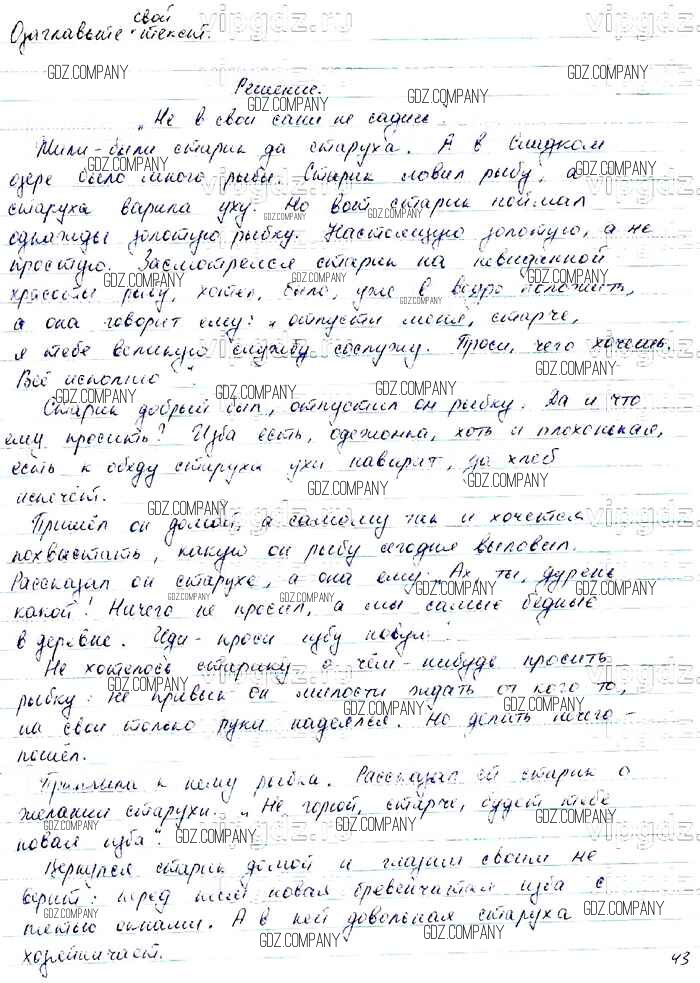 свой
Озаглавьте текст.
Решение.
„Не в свои сани не садись
Жили-были старик да старуха. А в
озере было много рыбы. Старик ловил рыбу, а
старуха варила уху. Но вот старик поймал
однажды золотую рыбку. Настоящую золотую, а не
простую. Засмотрелся старик на невиданной
красоты рыбу, хотел, было, уже в ведро положить,
а она говорит ему: „отпусти меня, старче,
я тебе великую службу сослужу. Проси, чего хочешь.
Всё исполню“.
Старик добрый был, отпустил он рыбку. Да и что
ему просить? Изба есть, одежонка, хоть и плохонькая,
есть, к обеду старуха ухи наварит, да хлеб
испечёт.
Пришёл он домой, а самому так и хочется
похвастать, какую он рыбу сегодня выловил.
Рассказал он старухе, а она ему: „Ах, ты, дурень
какой! Ничего не просил, а мы самые бедные
в деревне. Иди - проси избу новую“.
Не хотелось старику о чём-нибудь просить
рыбку: не привык он милости ждать от кого то,
на свои только руки надеялся. Но делать нечего -
пошёл.
Приплыла к нему рыбка. Рассказал ей старик о
желании старухи. „Не горюй, старче, будет тебе
новая изба“.
Вернулся старик домой и глазам своим не
верит: перед ним новая бревенчатая изба с
пятью окнами. А в ней довольная старуха
хозяйничает.
43
GDZ.COMPANY
vipgdz.ru